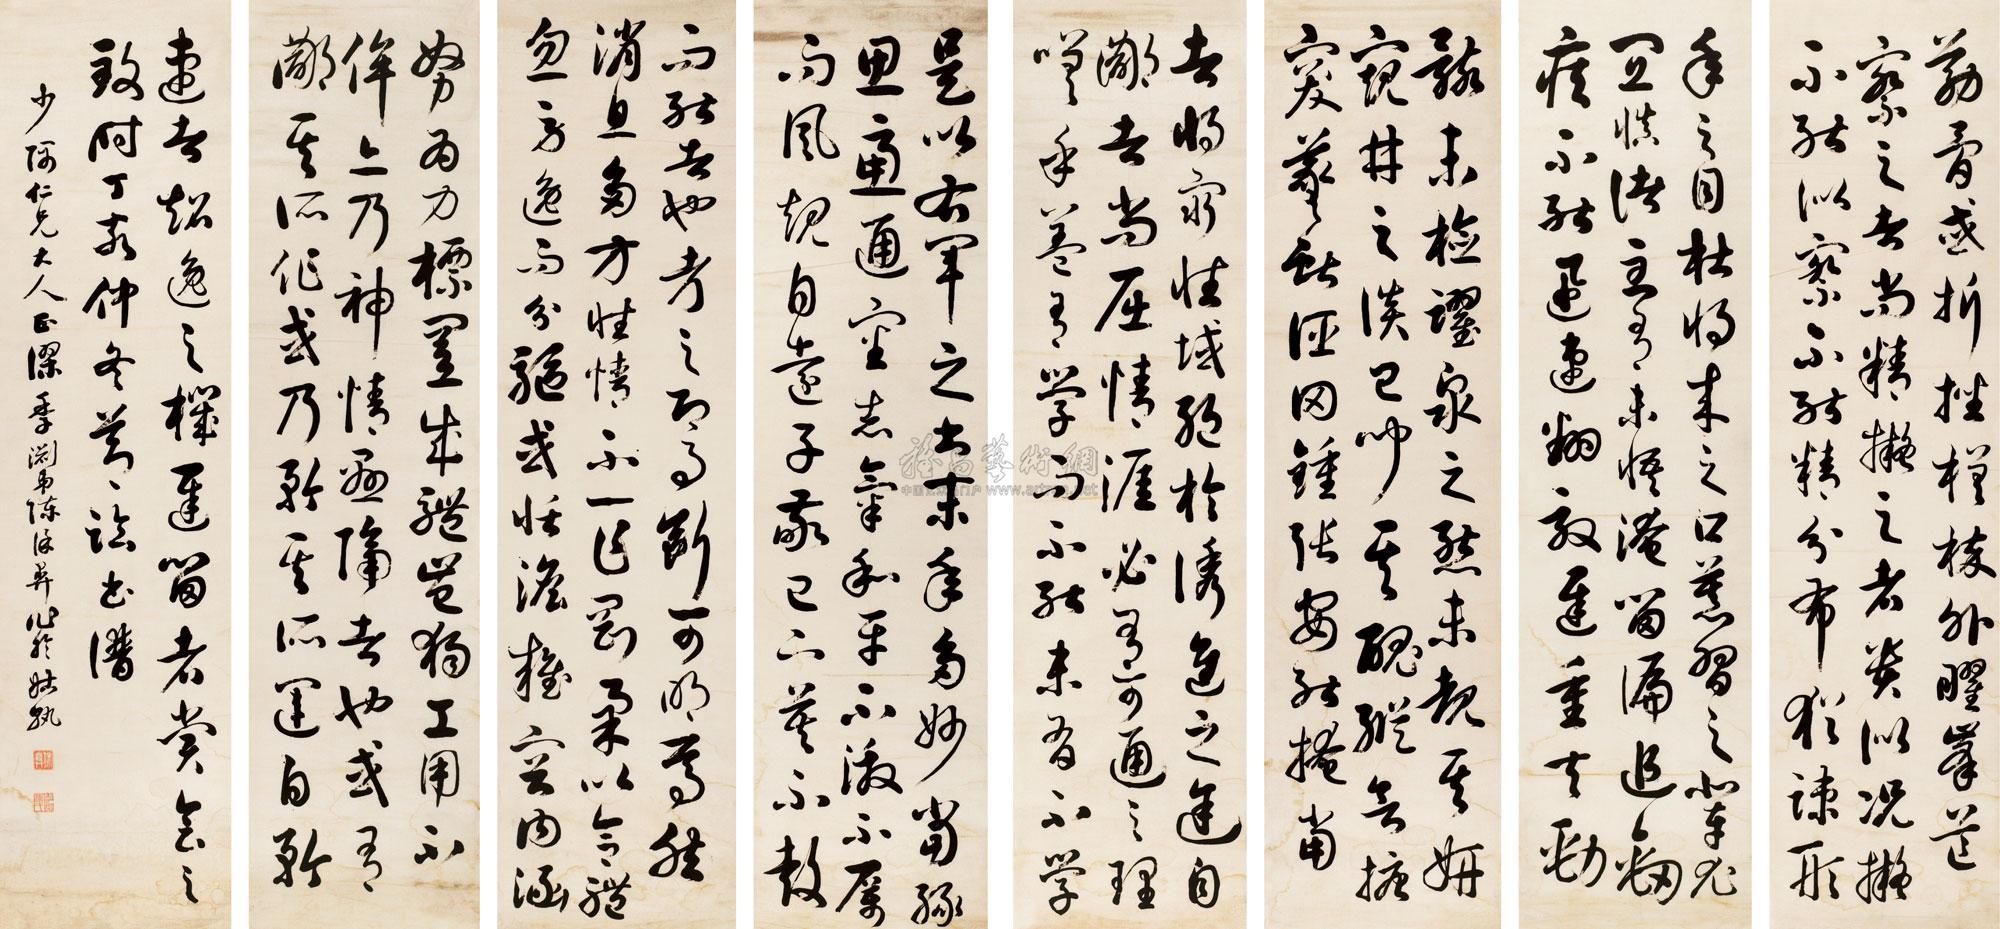 勒胷或折挫槎枿外曜峯芒
察之者尚精擬之者貴似況擬
不能似察不能精分布猶疎形
年之目杜將來之口慕習之輩尤
宜慎諸至有未悟淹留偏追勁
疾不能迅速翻效遲重夫勁
骸未檢躍泉之態未覩其妍
窺井之談已聞其醜縱欲搪
突羲獻誣罔鍾張安能掩當
者將窮性域絕於誘進之途自
鄙者尚屈情涯必有可通之理
嗟乎蓋有學而不能未有不學
是以右軍之書末年多妙當緣
思慮通審志氣和平不激不厲
而風規自遠子敬已下莫不鼓
而能者也考之即事斷可明焉然
消息多方性情不一乍剛柔以合體
忽勞逸而分驅或恬澹雍容內涵
努為力標置成體豈獨工用不
侔亦乃神情懸隔者也或有
鄙其所作或乃矜其所運自矜
速者超逸之機遲留者賞會之
致時丁亥仲冬臨書譜
仁兄大人正謬季淵弟陳